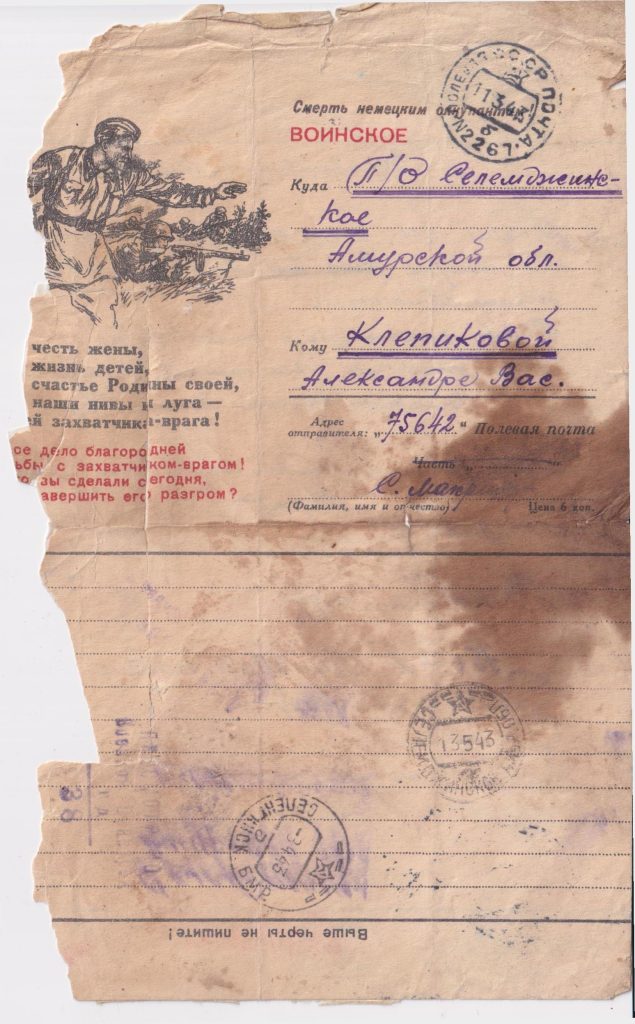 Смерть немецким оккупантам
ВОИНСКОЕ
СССР ПОЧТА
11 3.43
N2267
Куда П/О Селемджинс-
кое
Амурской обл.
Кому Клепиковой
Александре Вас.
Адрес
отправителя: „75642" Полевая почта
Часть
С.
(Фамилия, имя и отчество) Цена 6 коп.
честь жены,
жизнь детей,
счастье Родины своей,
наши нивы и луга —
й захватчика-врага!
ое дело благородней
ьбы с захватчиком-врагом!
вы сделали сегодня,
авершить его разгром?
13543
38
СЕЛЕНГИНСК
-3.4.43
БМР
Выше черты не пишите!